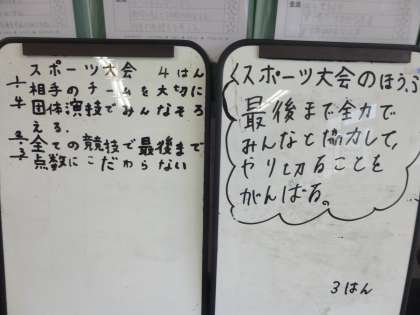 スポーツ大会 4はん
1 相手のチームを大切に
4 団体演技でみんなそろ
える.
2 全ての競技で最後まで
3 点数にこだわらない
スポーツ大会のほうふ
最後まで全力で
みんなと協力して、
やり切ることを
がんばる。
3はん